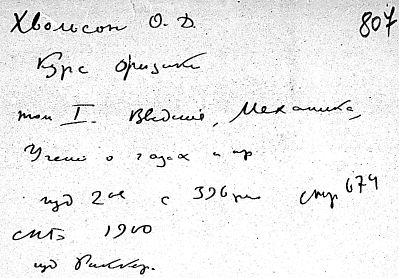 Хвольсон О. Д. 807
Курс физики
том I. Введение, Механика,
Учение о газах и пр
изд 2ое с 396 рис стр 674
СПБ 1900
изд Риккер.